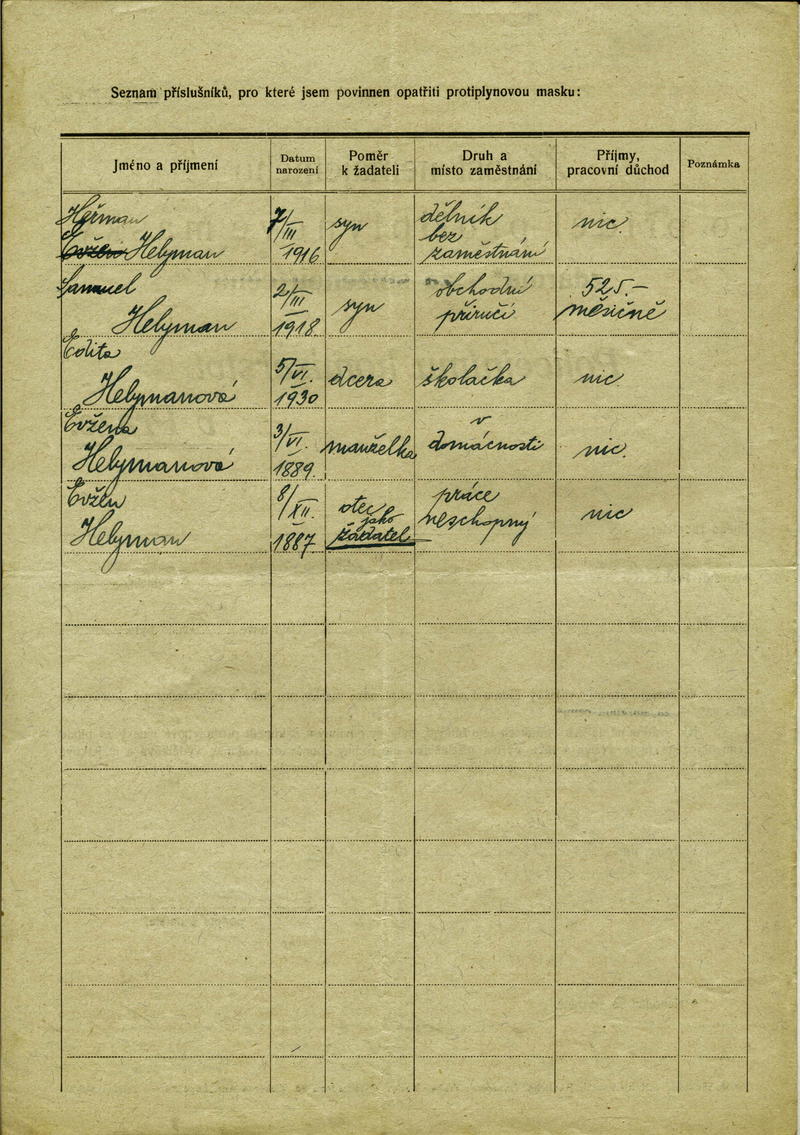 Seznam příslušníků, pro které jsem povinnen opatřiti protiplynovou masku:
Jméno a příjmení
Datum narození
Poměr k žadateli
Druh a místo zaměstnání
Příjmy, pracovní důchod
Poznámka
Heřman
Evžen Helyman
7/III 1916
syn
dělník bez zaměstnání
nic.
Samuel
Helyman
2/III 1918
syn
obchodní příručí
525.- měsíčně
Edita
Helymanová
5/VI. 1930
dcera
školačka
nic.
Evžena
Helymanová
3/VI. 1889.
manželka
v domácnosti
nic.
Evžen
Helyman
8/XII. 1887.
otec jako žadatel
práce neschopný
nic